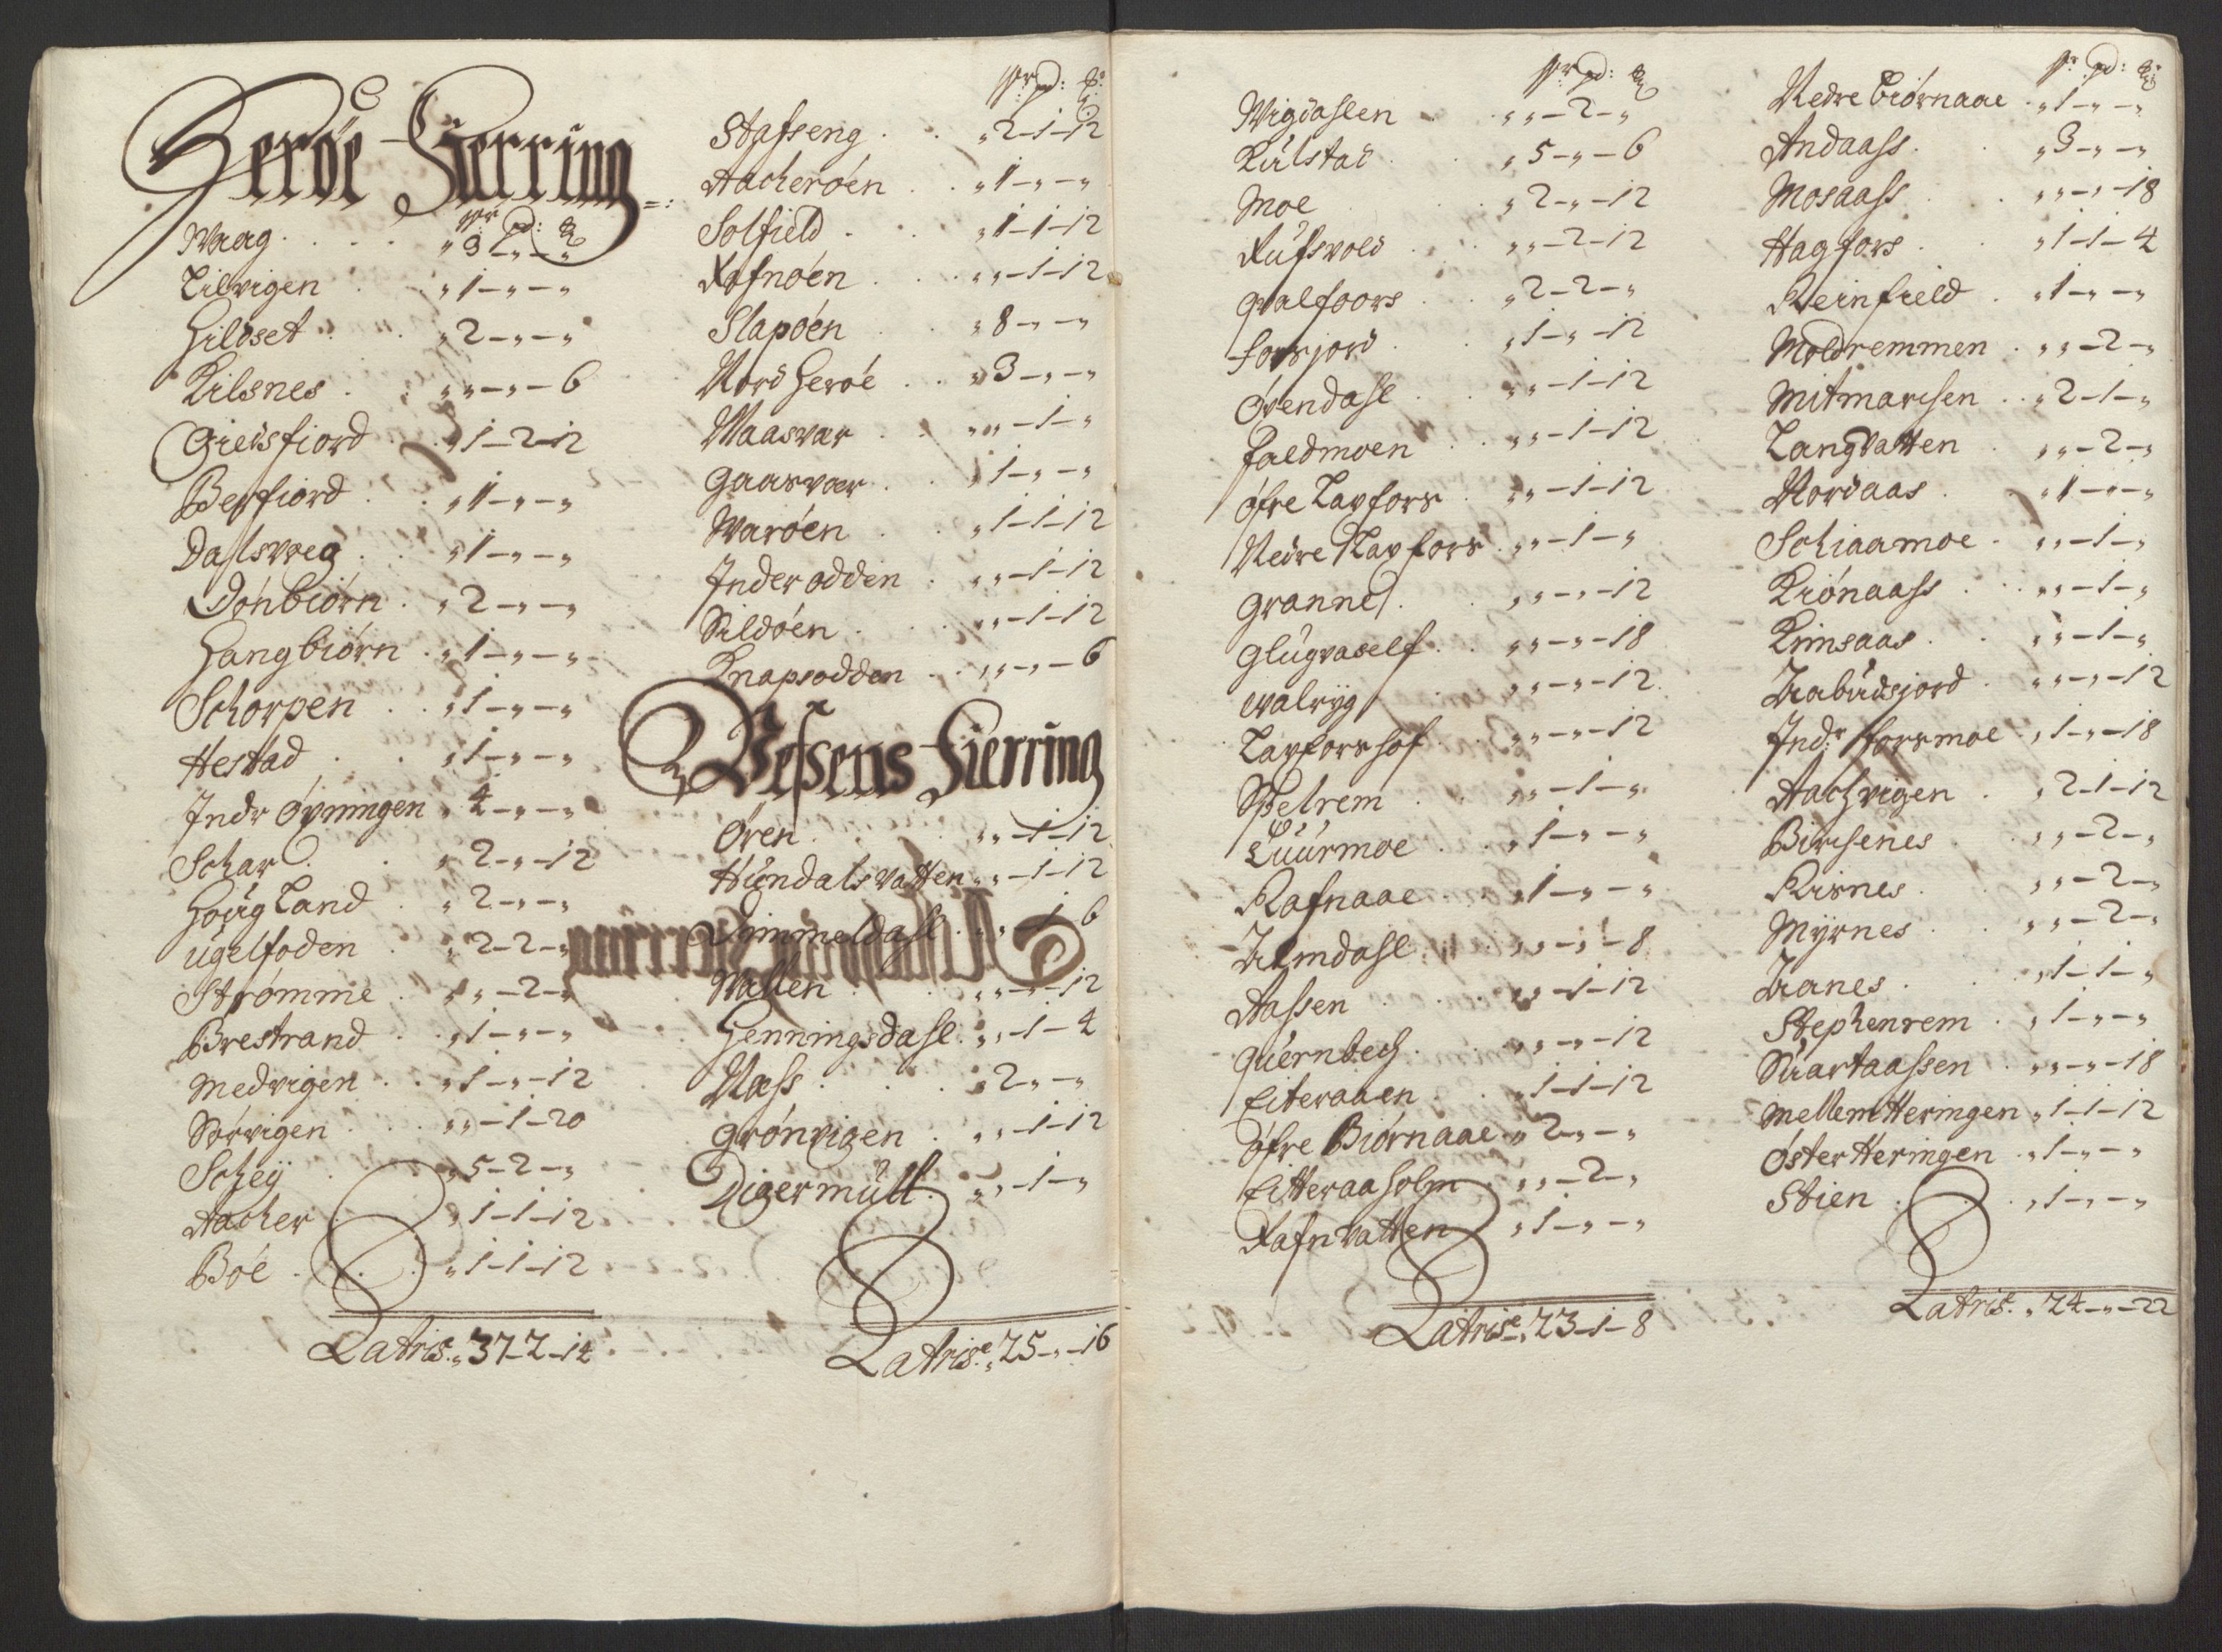 Herøe Fierring =:
Waag . . . . „ 3 „ - „ - „
Lilvigen . . „ 1 - „ - „
Hildset . . „ 2 - „ - „
Kilsnes . . „ „ - „ - 6
Gieesfiord . „ 1 - 2 - 12
Berfiord . . „ 1 - „ - „
Dalsvoeg . . „ 1 - „ - „
Dønbiørn . „ 2 - „ - „
Hangbiørn . „ 1 - „ - „
Schorpen . . „ 1 - „ - „
Hestad . . „ 1 - „ - „
Indr Øvningen „ 4 - „ - „
Schar . . „ 2 - „ - 12
Houg Land . „ 2 - „ - „
Ugelfoden . „ 2 - 2 - „
Strømme . „ „ - 2 - „
Brestrand . . „ 1 - „ - „
Medvigen . . „ 1 - „ - 12
Sørvigen . . „ „ - 1 - 20
Schey . . „ 5 - 2 - „
Aacher . . „ 1 - 1 - 12
Bøe . . . „ 1 - 1 - 12
Latris: „ 37 - 2 - 14
Stafseng . . „ 2 - 1 - 12
Aacherøen . . „ 1 - „ - „
Solfield . . „ 1 - 1 - 12
Rafnøen . . „ „ - 1 - 12
Slapøen . . „ 8 - „ - „
Nord Herøe . . „ 3 - „ - „
Maasvar . . „ „ - 1 - „
Gaasvær . . „ 1 - „ - „
Warøen . . „ 1 - 1 - 12
Inder odden . „ „ - 1 - 12
Sildøen . . „ „ - 1 - 12
Knapsodden . „ „ - „ - 6
Vefsens Fierring
Øren . . „ „ - 1 - 12
Hundals vatten „ „ - 1 - 12
Dimmeldahl . „ „ - 1 6
Wallen . . „ „ - „ - 12
Henningsdahl . „ „ - 1 - 4
Næss . . . „ 2 - „ - „
Grønvigen . „ „ - 1 - 12
Digermull . „ „ - 1 - „
Latris: „ 25 - „ - 16
Wigdahlen . . „ „ - 2 - „
Kulstad . . „ 5 - „ - 6
Moe . . „ 2 - „ - 12
Fufsvold . . „ „ - 2 - 12
Qvalfoors . . „ 2 - 2 - „
Forsjord . . „ 1 - „ - 12
Øvendahl . . „ „ - 1 - 12
Faldmoen . . „ „ - 1 - 12
Øfre Lavfors . „ „ - 1 - 12
Nedre Lavfors . „ „ - 1 - „
Granne . . „ „ - „ - 12
Glugvaself . . „ „ - „ - 18
Walryg . . „ „ - „ - 12
Lavfors hof . . „ „ - „ - 12
Spelrem . . „ „ - 1 - „
Luurmoe . . „ 1 - „ - „
Rafnaae . . „ 1 - „ - „
Almdahl . „ „ - „ - 8
Aassen . . „ „ - 1 - 12
Quernbech . . „ „ - „ - 12
Eiteraaen . . „ 1 - 1 - 12
Øfre Biørnaae . „ 2 - „ - „
Eitteraaholm . „ „ - 2 - „
Rafn Vatten . „ 1 - „ - „
Latris: „ 23 - 1 - 8
Nedre Biørnaae . „ 1 - „ - „
Andaass . . „ 3 - „ - „
Mosaass . . „ „ - „ - 18
Hagfors . . „ 1 - 1 - 4
Reinfield . „ 1 - „ - „
Moldremmen . „ „ - 2 - „
Mitmarchen . . „ 2 - 1 - „
Langvatten . „ „ - 2 - „
Nordaas . . „ 1 - „ - „
Schiaamoe . „ „ - 1 - „
Kiønaass . . „ „ - 1 - „
Kimsaas . . „ „ - 1 - „
Trabudsjord . „ „ - „ - 12
Indr: forsmoe . „ 1 - „ - 18
Aachvigen . „ 2 - 1 - 12
Birchenes . . „ „ - 2 - „
Risnes . . „ „ - 2 - „
Myrnes . . „ „ - 2 - „
Tranes . . „ 1 - 1 - „
Stephenrem . „ 1 - „ - „
Suartaassen . „ „ - „ - 18
Mellem Heringen „ 1 - 1 - 12
Øster Heringen . „ 1 - „ - „
Stien . . „ 1 - „ - „
Latris: „ 24 - „ - 22